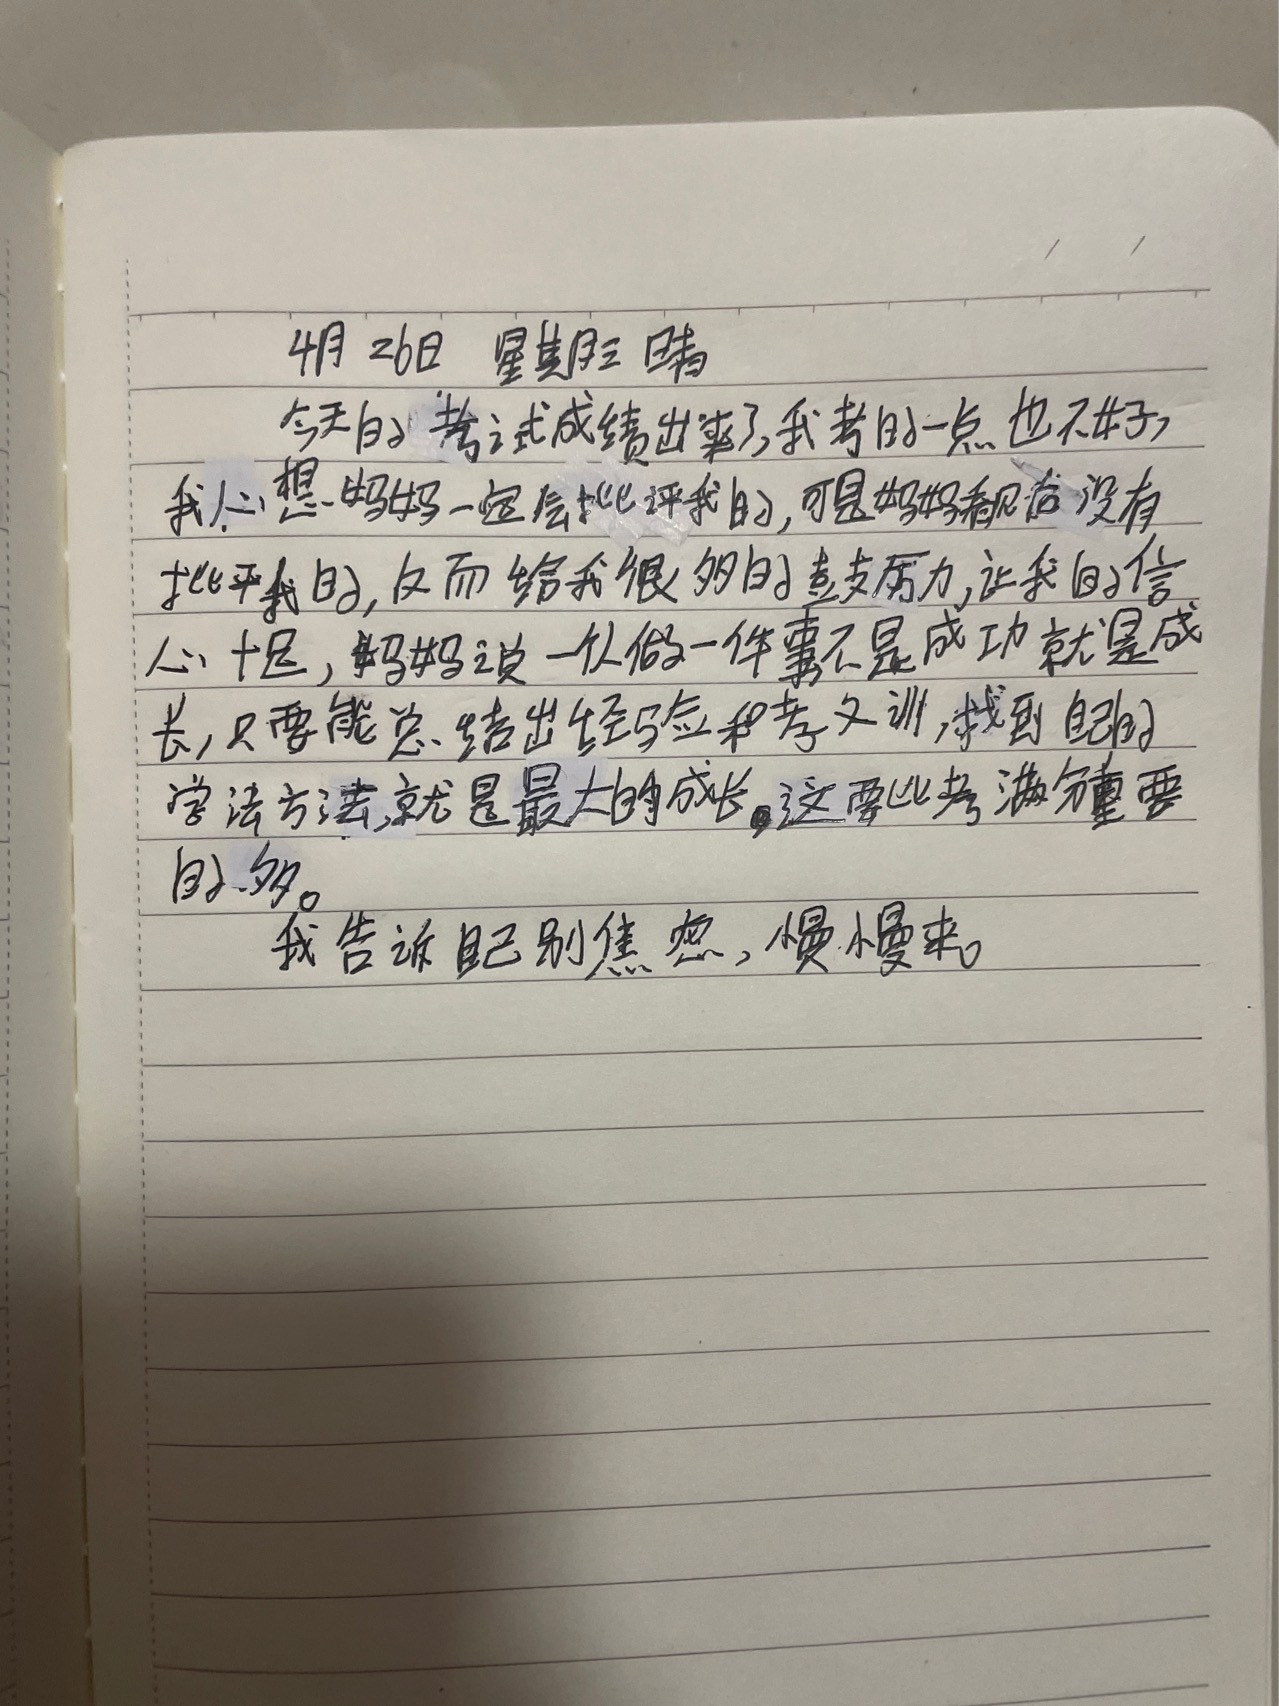 4月26日 星期三 晴
今天的考试成绩出来了,我考的一点也不好,
我心想妈妈一定会批评我的,可是妈妈看见后没有
批评我的,反而给我很多的鼓励力,让我的信
心十足,妈妈说一个人做一件事不是成功就是成
长,只要能总结出经验和孝文训,找到自己的
学法方法,就是最大的成长。这要比考满分重要
的多。
我告诉自己别焦虑,慢慢来。